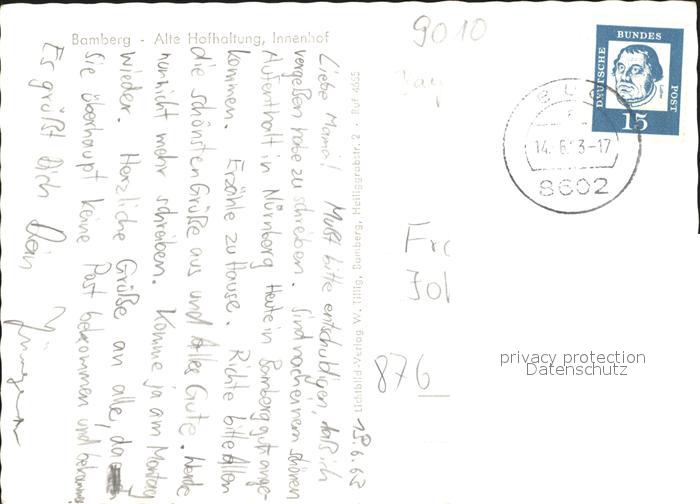 Bamberg - Alte Hofhaltung, Innenhof
9010
DEUTSCHE BUNDES POST
15
14. 6. 63-17
8602
Liebe Mama! Mußt bitte entschuldigen, daß ich
vergeßen habe zu schreiben. Sind nach einem schönen
Aufenthalt in Nürnberg heute in Bamberg gut ange-
kommen. Erzähle zu Hause. Richte bitte allen
die schönsten Grüße aus und Alles Gute. Werde
nun nicht mehr schreiben. Komme ja am Montag
wieder. Herzliche Grüße an alle, da
sie überhaupt keine Post bekommen und
Es grüßt Dich Dein
Jürgen
Lichtbild-Verlag W. Tillig, Bamberg, Heiliggrabstr. 2
13.6.63
876
privacy protection
Datenschutz